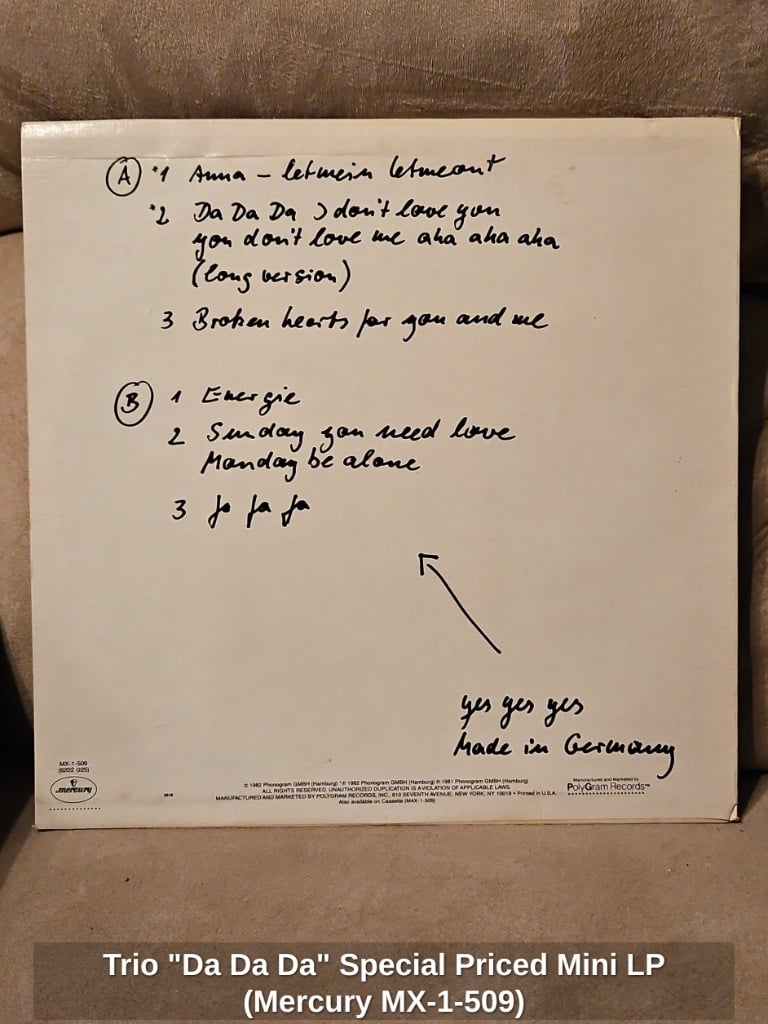 A *1 Anna – letmein letmeout
*2 Da Da Da I don't love you
you don't love me aha aha aha
(long version)
3 Broken hearts for you and me
B 1 Energie
2 Sunday you need love
Monday be alone
3 Ja Ja Ja
yes yes yes
Made in Germany
MX-1-509
(6202 025)
mercury
℗ 1982 Phonogram GMBH (Hamburg) *℗ 1982 Phonogram GMBH (Hamburg) ℗ 1981 Phonogram GMBH (Hamburg)
ALL RIGHTS RESERVED. UNAUTHORIZED DUPLICATION IS A VIOLATION OF APPLICABLE LAWS.
MANUFACTURED AND MARKETED BY POLYGRAM RECORDS, INC., 810 SEVENTH AVENUE, NEW YORK, NY 10019 • Printed in U.S.A.
Also available on Cassette (M4X-1-509)
Manufactured and Marketed by
PolyGram Records™
Trio "Da Da Da" Special Priced Mini LP
(Mercury MX-1-509)